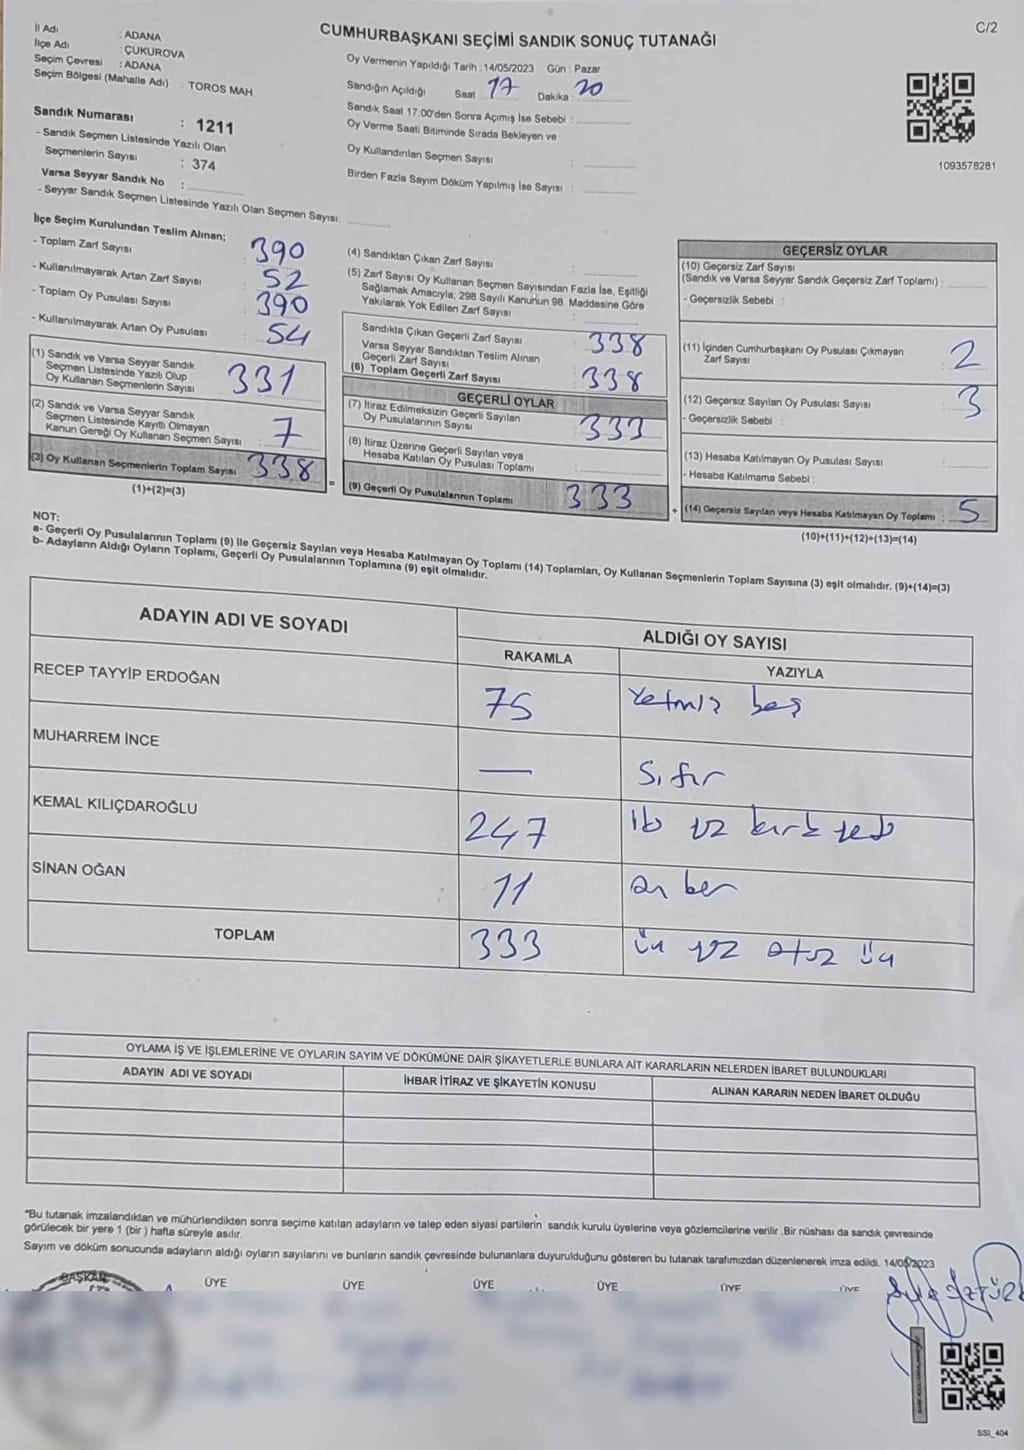 C/2
CUMHURBAŞKANI SEÇİMİ SANDIK SONUÇ TUTANAĞI
İl Adı : ADANA
İlçe Adı : ÇUKUROVA
Seçim Çevresi : ADANA
Seçim Bölgesi (Mahalle Adı) : TOROS MAH.
Sandık Numarası : 1211
- Sandık Seçmen Listesinde Yazılı Olan
Seçmenlerin Sayısı : 374
Varsa Seyyar Sandık No :
- Seyyar Sandık Seçmen Listesinde Yazılı Olan Seçmen Sayısı:
Oy Vermenin Yapıldığı Tarih : 14/05/2023 Gün : Pazar
Sandığın Açıldığı Saat : 17 Dakika : 20
Sandık Saat 17.00'den Sonra Açımış İse Sebebi :
Oy Verme Saati Bitiminde Sırada Bekleyen ve
Oy Kullandırılan Seçmen Sayısı :
Birden Fazla Sayım Döküm Yapılmış İse Sayısı :
1093578281
İlçe Seçim Kurulundan Teslim Alınan;
- Toplam Zarf Sayısı : 390
- Kullanılmayarak Artan Zarf Sayısı : 52
- Toplam Oy Pusulası Sayısı : 390
- Kullanılmayarak Artan Oy Pusulası : 54
(1) Sandık ve Varsa Seyyar Sandık
Seçmen Listesinde Yazılı Olup
Oy Kullanan Seçmenlerin Sayısı : 331
(2) Sandık ve Varsa Seyyar Sandık
Seçmen Listesinde Kayıtlı Olmayan
Kanun Gereği Oy Kullanan Seçmen Sayısı : 7
(3) Oy Kullanan Seçmenlerin Toplam Sayısı : 338
(1)+(2)=(3)
=
(4) Sandıktan Çıkan Zarf Sayısı :
(5) Zarf Sayısı Oy Kullanan Seçmen Sayısından Fazla İse, Eşitliği
Sağlamak Amacıyla; 298 Sayılı Kanunun 98. Maddesine Göre
Yakılarak Yok Edilen Zarf Sayısı :
Sandıkta Çıkan Geçerli Zarf Sayısı : 338
Varsa Seyyar Sandıktan Teslim Alınan
Geçerli Zarf Sayısı :
(6) Toplam Geçerli Zarf Sayısı : 338
GEÇERLİ OYLAR
(7) İtiraz Edilmeksizin Geçerli Sayılan
Oy Pusulalarının Sayısı : 333
(8) İtiraz Üzerine Geçerli Sayılan veya
Hesaba Katılan Oy Pusulası Toplamı :
(9) Geçerli Oy Pusulalarının Toplamı : 333
+
GEÇERSİZ OYLAR
(10) Geçersiz Zarf Sayısı
(Sandık ve Varsa Seyyar Sandık Geçersiz Zarf Toplamı) :
- Geçersizlik Sebebi :
(11) İçinden Cumhurbaşkanı Oy Pusulası Çıkmayan
Zarf Sayısı : 2
(12) Geçersiz Sayılan Oy Pusulası Sayısı : 3
- Geçersizlik Sebebi :
(13) Hesaba Katılmayan Oy Pusulası Sayısı :
- Hesaba Katılmama Sebebi :
(14) Geçersiz Sayılan veya Hesaba Katılmayan Oy Toplamı : 5
(10)+(11)+(12)+(13)=(14)
NOT:
a- Geçerli Oy Pusulalarının Toplamı (9) ile Geçersiz Sayılan veya Hesaba Katılmayan Oy Toplamı (14) Toplamları, Oy Kullanan Seçmenlerin Toplam Sayısına (3) eşit olmalıdır. (9)+(14)=(3)
b- Adayların Aldığı Oyların Toplamı, Geçerli Oy Pusulalarının Toplamına (9) eşit olmalıdır.
ADAYIN ADI VE SOYADI ALDIĞI OY SAYISI
RAKAMLA YAZIYLA
RECEP TAYYİP ERDOĞAN 75 Yetmiş beş
MUHARREM İNCE — Sıfır
KEMAL KILIÇDAROĞLU 247 iki yüz kırk yedi
SİNAN OĞAN 11 on bir
TOPLAM 333 üç yüz otuz üç
OYLAMA İŞ VE İŞLEMLERİNE VE OYLARIN SAYIM VE DÖKÜMÜNE DAİR ŞİKAYETLERLE BUNLARA AİT KARARLARIN NELERDEN İBARET BULUNDUKLARI
ADAYIN ADI VE SOYADI İHBAR İTİRAZ VE ŞİKAYETİN KONUSU ALINAN KARARIN NEDEN İBARET OLDUĞU
"Bu tutanak imzalandıktan ve mühürlendikten sonra seçime katılan adayların ve talep eden siyasi partilerin sandık kurulu üyelerine veya gözlemcilerine verilir .Bir nüshası da sandık çevresinde
görülecek bir yere 1 (bir ) hafta süreyle asılır.
Sayım ve döküm sonucunda adayların aldığı oyların sayılarını ve bunların sandık çevresinde bulunanlara duyurulduğunu gösteren bu tutanak tarafımızdan düzenlenerek imza edildi. 14/05/2023
BAŞKAN ÜYE ÜYE ÜYE ÜYE ÜYE ÜYE
SSI_404